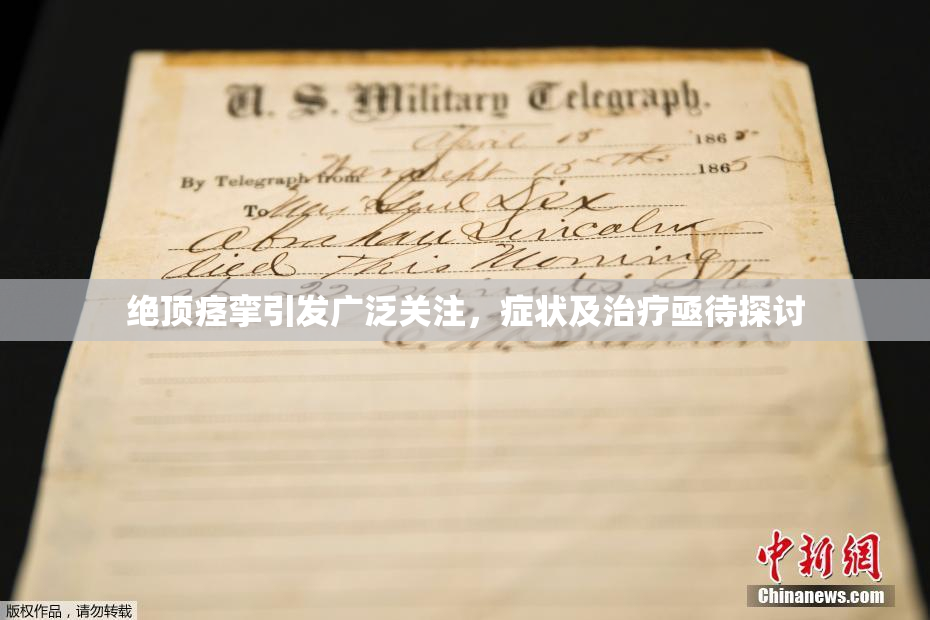 U. S. Military Telegraph.
April 15 1865
By Telegraph from War Dept 15th 1865
To Maj Genl Dix
Abraham Lincoln
died This Morning
at 22 minutes after
绝顶痉挛引发广泛关注，症状及治疗亟待探讨
中新网
Chinanews.com
版权作品，请勿转载